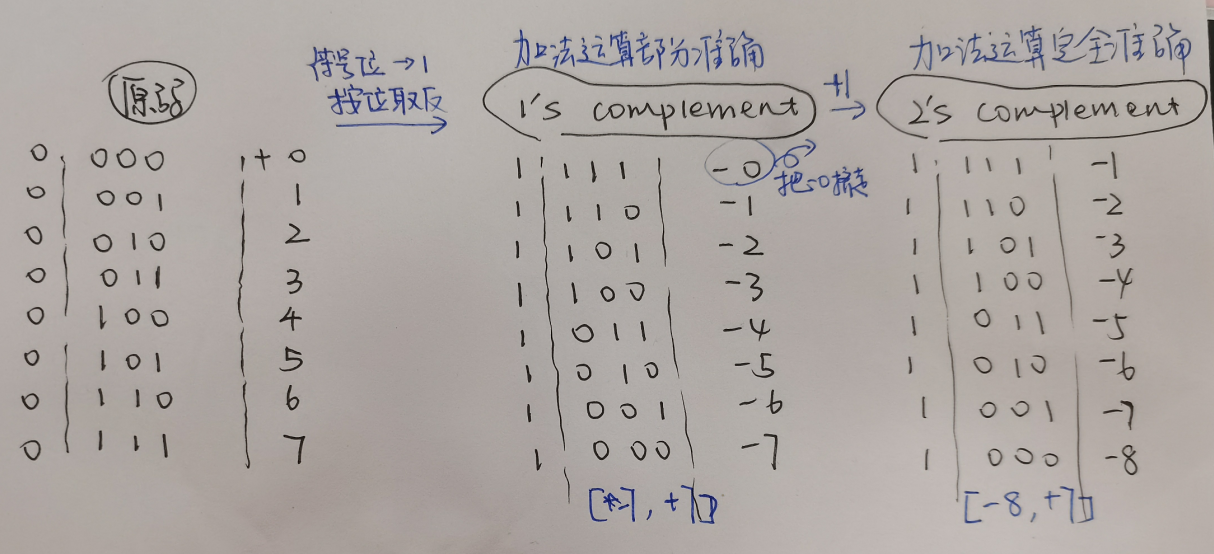 原码
符号位→1
按位取反
加法运算部分准确
1's complement
+1
加法运算完全准确
2's complement
0 000 +0
0 001 1
0 010 2
0 011 3
0 100 4
0 101 5
0 110 6
0 111 7
1 111 -0
把-0挤走
1 110 -1
1 101 -2
1 100 -3
1 011 -4
1 010 -5
1 001 -6
1 000 -7
[-7, +7]
1 111 -1
1 110 -2
1 101 -3
1 100 -4
1 011 -5
1 010 -6
1 001 -7
1 000 -8
[-8, +7]